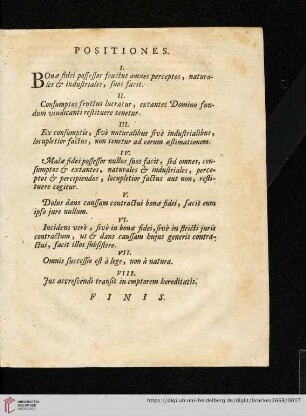 POSITIONES.
I.
BOnæ fidei possessor fructus omnes perceptos, natura-
les & industriales, suos facit.
II.
Consumptos fructus lucratur, extantes Domino fun-
dum vindicanti restituere tenetur.
III.
Ex consumptis, sivè naturalibus sivè industrialibus,
locupletior factus, non tenetur ad eorum æstimationem.
IV.
Malæ fidei possessor nullos suos facit, sed omnes, con-
sumptos & extantes, naturales & industriales, perce-
ptos & percipiendos, locupletior factus aut non, resti-
tuere cogitur.
V.
Dolus dans caussam contractui bonæ fidei, facit eum
ipso jure nullum.
VI.
Incidens verò, sivè in bonæ fidei, sivè in stricti juris
contractum, ut & dans caussam hujus generis contra-
ctui, facit illos subsistere.
VII.
Omnis successio est à lege, non à natura.
VIII.
Jus accrescendi transit in emptorem hereditatis.
FINIS.
UNIVERSITÄTS-
BIBLIOTHEK
HEIDELBERG
https://digi.ub.uni-heidelberg.de/diglit/brockes1668/0017